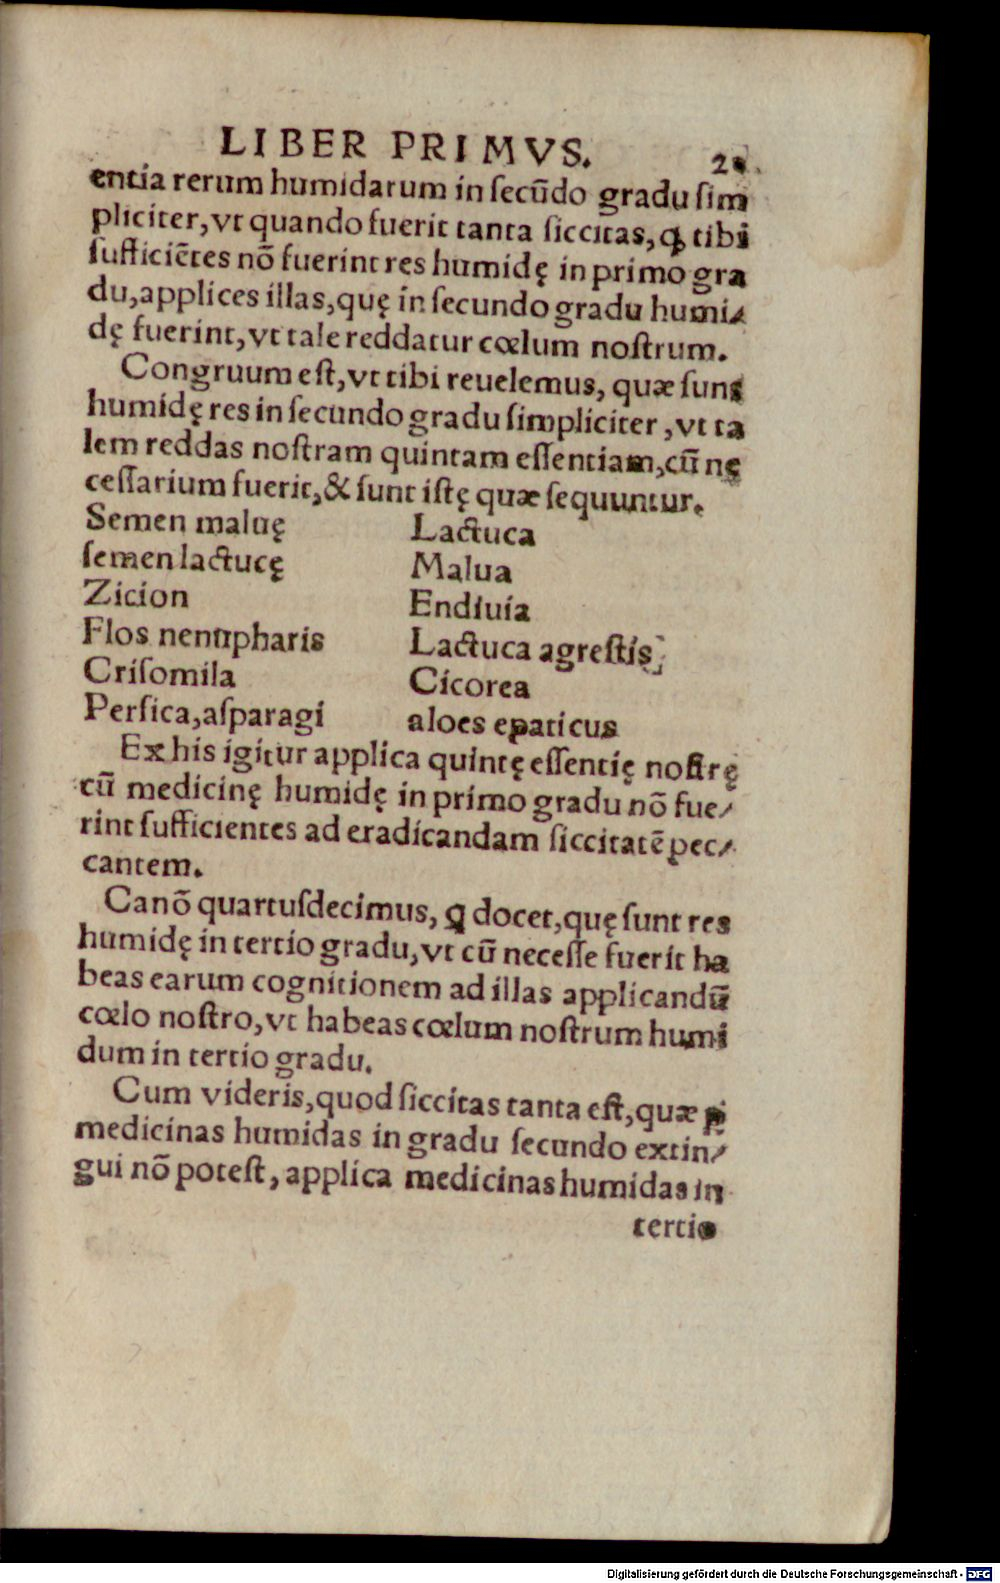 LIBER PRIMVS.
entia rerum humidarum in ſecūdo gradu ſim
pliciter, vt quando fuerit tanta ſiccitas, ꝙ tibi
ſufficiētes nō fuerint res humidę in primo gra
du, applices illas, quę in ſecundo gradu humi⸗
dę fuerint, vt tale reddatur cœlum noſtrum.
Congruum eſt, vt tibi reuelemus, quæ ſunt
humidę res in ſecundo gradu ſimpliciter, vt ta
lem reddas noſtram quintam eſſentiam, cū nę
ceſſarium fuerit, & ſunt iſtę quæ ſequuntur.
Semen maluę Lactuca
ſemen lactucę Malua
Zicion Endiuia
Flos nenupharis Lactuca agreſtis
Criſomila Cicorea
Perſica, aſparagi aloes epaticus
Ex his igitur applica quintę eſſentię noſtrę
cū medicinę humidę in primo gradu nō fue⸗
rint ſufficientes ad eradicandam ſiccitatē pec⸗
cantem.
Canō quartuſdecimus, ꝗ docet, quę ſunt res
humidę in tertio gradu, vt cū neceſſe fuerit ha
beas earum cognitionem ad illas applicandū
cœlo noſtro, vt habeas cœlum noſtrum humi
dum in tertio gradu.
Cum videris, quod ſiccitas tanta eſt, quæ
medicinas humidas in gradu ſecundo extin⸗
gui nō poteſt, applica medicinas humidas in
tertio
Digitalisierung gefördert durch die Deutsche Forschungsgemeinschaft - DFG